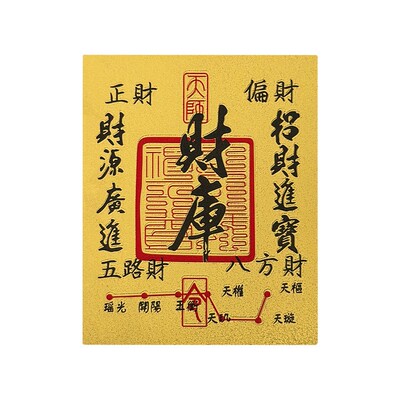 天師
正財
偏財
財庫
招財進寶
財源廣進
五路財
八方財
令
天樞
天權
瑤光 開陽 玉衡
天璣
天璇